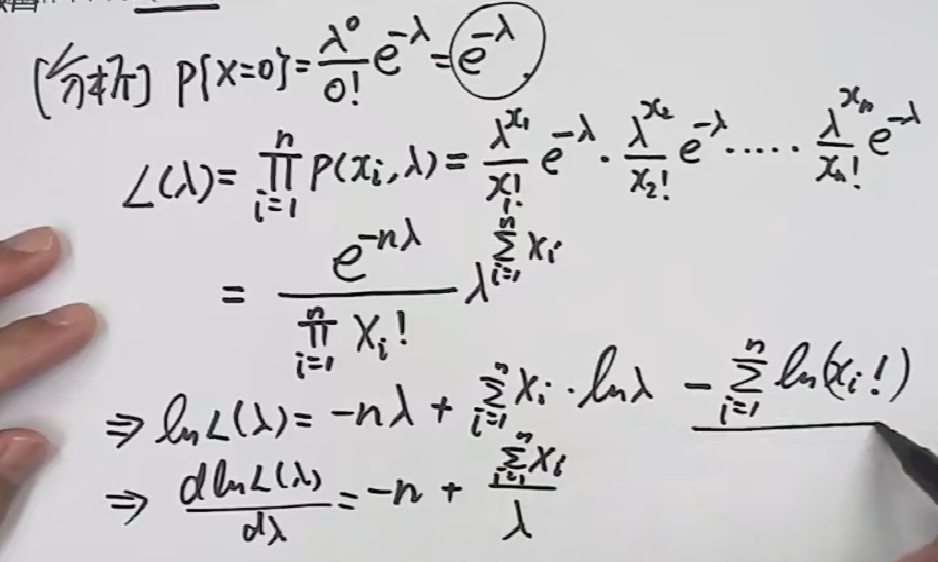 [分析] P{X=0}=λ⁰/0! e^{-λ}=e^{-λ}.
L(λ)=∏_{i=1}^{n} P(x_i,λ)=λ^{x_1}/x_1! e^{-λ}·λ^{x_2}/x_2! e^{-λ}·····λ^{x_n}/x_n! e^{-λ}
=e^{-nλ}/∏_{i=1}^{n} X_i! λ^{∑_{i=1}^{n} X_i}
⇒ ln L(λ)=-nλ+∑_{i=1}^{n} X_i·lnλ-∑_{i=1}^{n} ln(x_i!)
⇒ d ln L(λ)/dλ=-n+∑_{i=1}^{n} X_i/λ